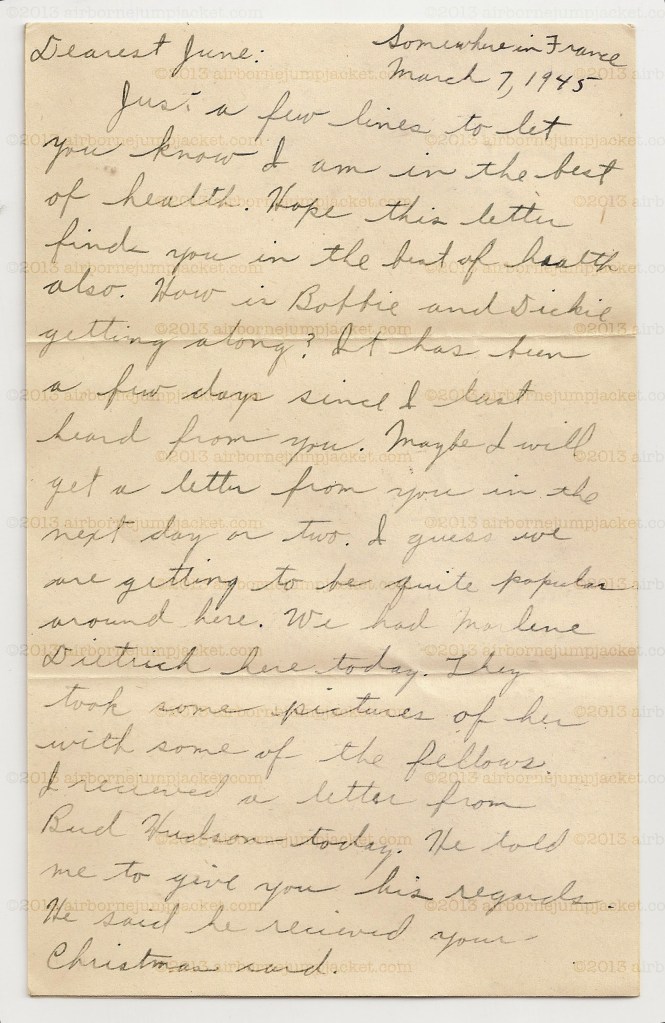 Somewhere in France
Dearest June: March 7, 1945
Just a few lines to let
you know I am in the best
of health. Hope this letter
finds you in the best of health
also. How is Bobbie and Dickie
getting along? It has been
a few days since I last
heard from you. Maybe I will
get a letter from you in the
next day or two. I guess we
are getting to be quite popular
around here. We had Marlene
Dietrich here today. They
took some pictures of her
with some of the fellows.
I recieved a letter from
Bud Hudson today. He told
me to give you his regards.
He said he recieved your
Christmas card.
©2013 airbornejumpjacket.com